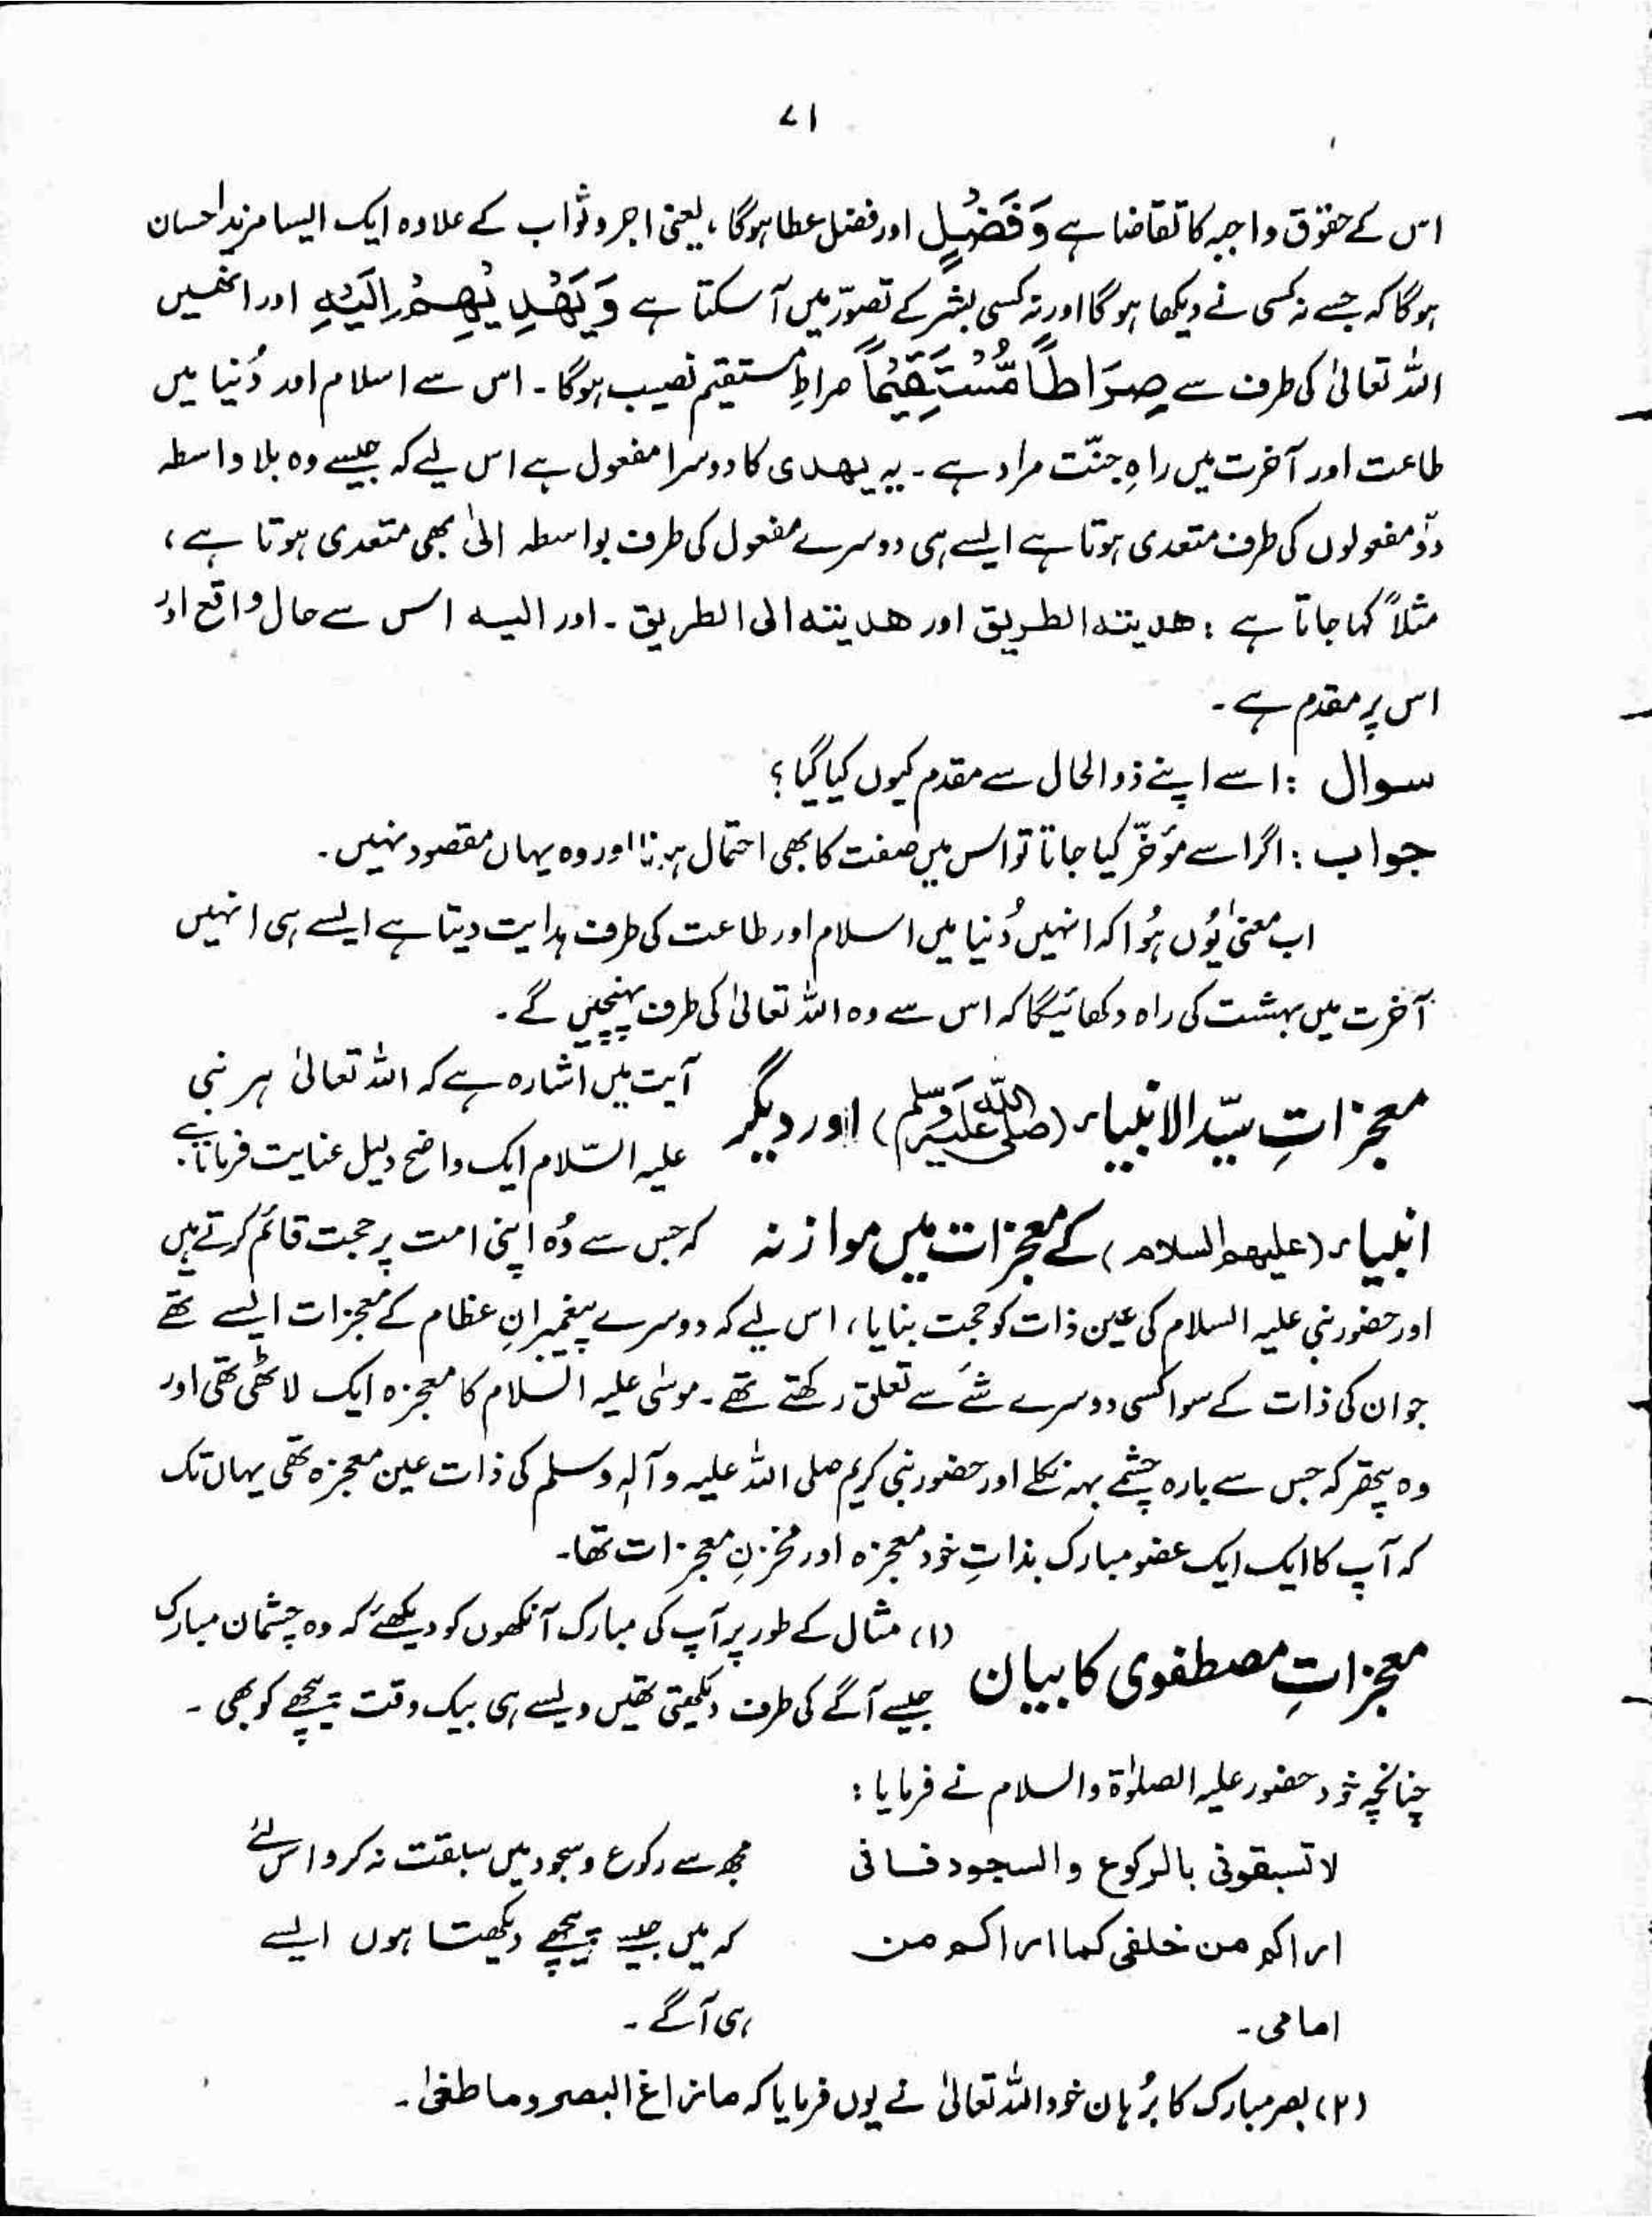 ۷۱
اس کے حقوق واجبہ کا تقاضا ہے وَفَضْلٍ اور فضل عطا ہوگا، یعنی اجر و ثواب کے علاوہ ایک ایسا مزید احسان
ہوگا کہ جسے نہ کسی نے دیکھا ہوگا اور نہ کسی بشر کے تصوّر میں آ سکتا ہے وَيَهْدِيْهِمْ اِلَيْهِ اور انھیں
اللہ تعالیٰ کی طرف سے صِرَاطًا مُّسْتَقِيْمًا صراطِ مستقیم نصیب ہوگا۔ اس سے اسلام اور دُنیا میں
طاعت اور آخرت میں راہِ جنّت مراد ہے۔ یہ یھدی کا دوسرا مفعول ہے اس لیے کہ جیسے وہ بلا واسطہ
دوٗ مفعولوں کی طرف متعدی ہوتا ہے ایسے ہی دوسرے مفعول کی طرف بواسطہ الیٰ بھی متعدی ہوتا ہے،
مثلاً کہا جاتا ہے : ھدیتہ الطریق اور ھدیتہ الی الطریق۔ اور الیہ اس سے حال واقع اور
اس پر مقدم ہے۔
سوال : اسے اپنے ذوالحال سے مقدم کیوں کیا گیا؟
جواب : اگر اسے مؤخّر کیا جاتا تو اس میں صفت کا بھی احتمال ہوتا اور وہ یہاں مقصود نہیں۔
اب معنیٰ یُوں ہُوا کہ انہیں دُنیا میں اسلام اور طاعت کی طرف ہدایت دیتا ہے ایسے ہی انہیں
آخرت میں بہشت کی راہ دکھائیگا کہ اس سے وہ اللہ تعالیٰ کی طرف پہنچیں گے۔
معجزاتِ سیّد الانبیاء (صلی اللہ علیہ وسلم) اور دیگر آیت میں اشارہ ہے کہ اللہ تعالیٰ ہر نبی
علیہ السّلام ایک واضح دلیل عنایت فرماتا ہے
انبیاء (علیھم السلام) کے معجزات میں موازنہ کہ جس سے وُہ اپنی امت پر حجت قائم کرتے ہیں
اور حضور نبی علیہ السلام کی عین ذات کو حجت بنایا، اس لیے کہ دوسرے پیغمبرانِ عظام کے معجزات ایسے تھے
جو ان کی ذات کے سوا کسی دوسرے شئے سے تعلق رکھتے تھے۔ موسٰی علیہ السّلام کا معجزہ ایک لاٹھی تھی اور
وہ پتھر کہ جس سے بارہ چشمے بہہ نکلے اور حضور نبی کریم صلی اللہ علیہ وآلہٖ وسلم کی ذات عین معجزہ تھی یہاں تک
کہ آپ کا ایک ایک عضو مبارک بذاتِ خود معجزہ اور مخزنِ معجزات تھا۔
معجزاتِ مصطفوی کا بیان (۱) مثال کے طور پر آپ کی مبارک آنکھوں کو دیکھئے کہ وہ چشمان مبارک
جیسے آگے کی طرف دیکھتی تھیں ویسے ہی بیک وقت پیچھے کو بھی۔
چنانچہ خود حضور علیہ الصلوٰۃ والسلام نے فرمایا :
لا تسبقونی بالرکوع والسجود فانی مجھ سے رکوع و سجود میں سبقت نہ کرو اس لئے
اراکم من خلفی کما اراکم من کہ میں جیسے پیچھے دیکھتا ہوں ایسے
امامی۔ ہی آگے۔
(۲) بصر مبارک کا بُرہان خود اللہ تعالیٰ نے یوں فرمایا کہ ما زاغ البصر وما طغیٰ۔